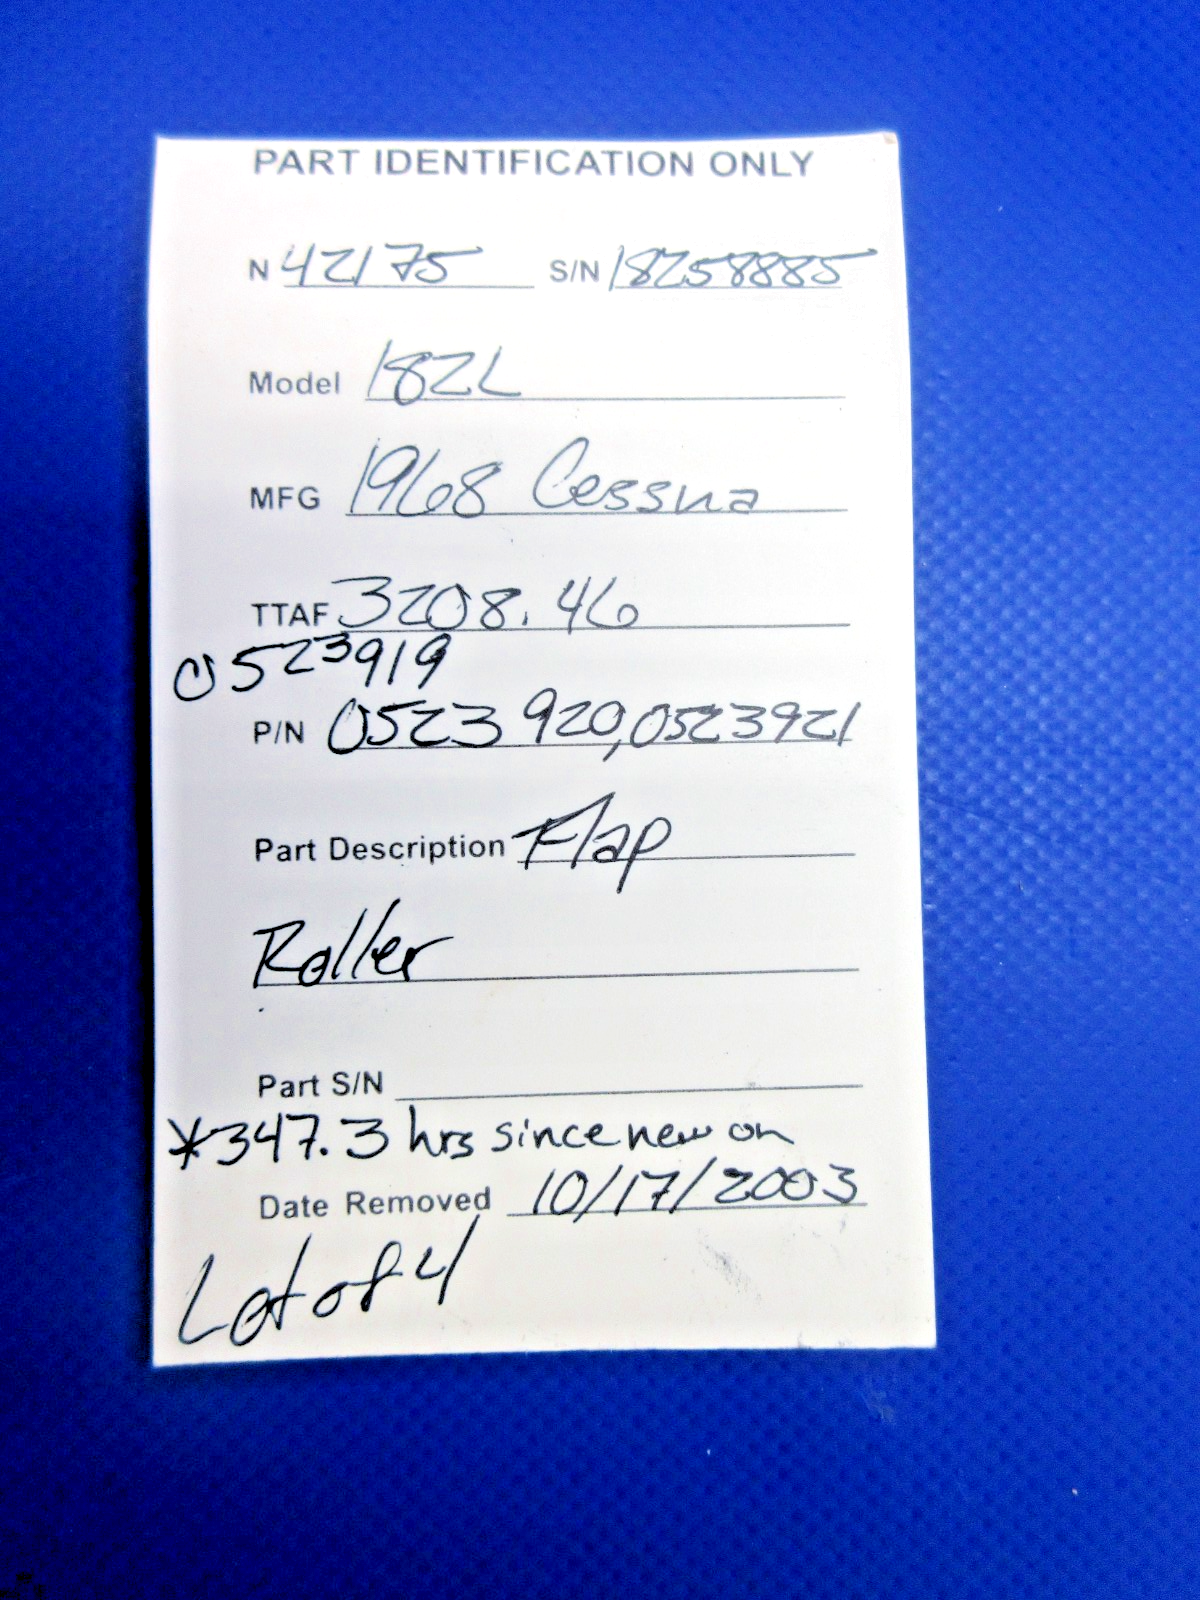 PART IDENTIFICATION ONLY
N 42175 S/N 18258885
Model 182L
MFG 1968 Cessna
TTAF 3208.46
0523919
P/N 0523920, 0523921
Part Description Flap
Roller
Part S/N
*347.3 hrs since new on
Date Removed 10/17/2003
Lot of 4